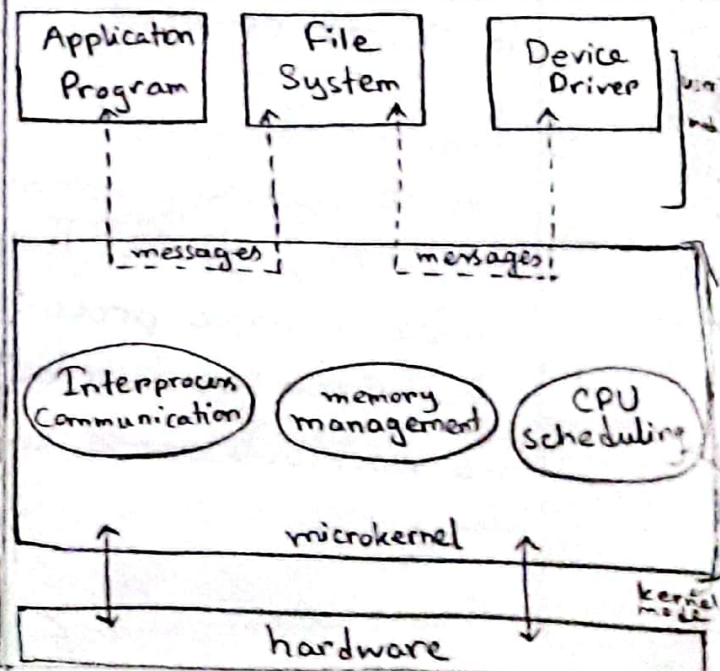 Application
Program
File
System
Device
Driver
messages
messages
Interprocess
Communication
memory
management
CPU
scheduling
microkernel
kernel
mode
hardware